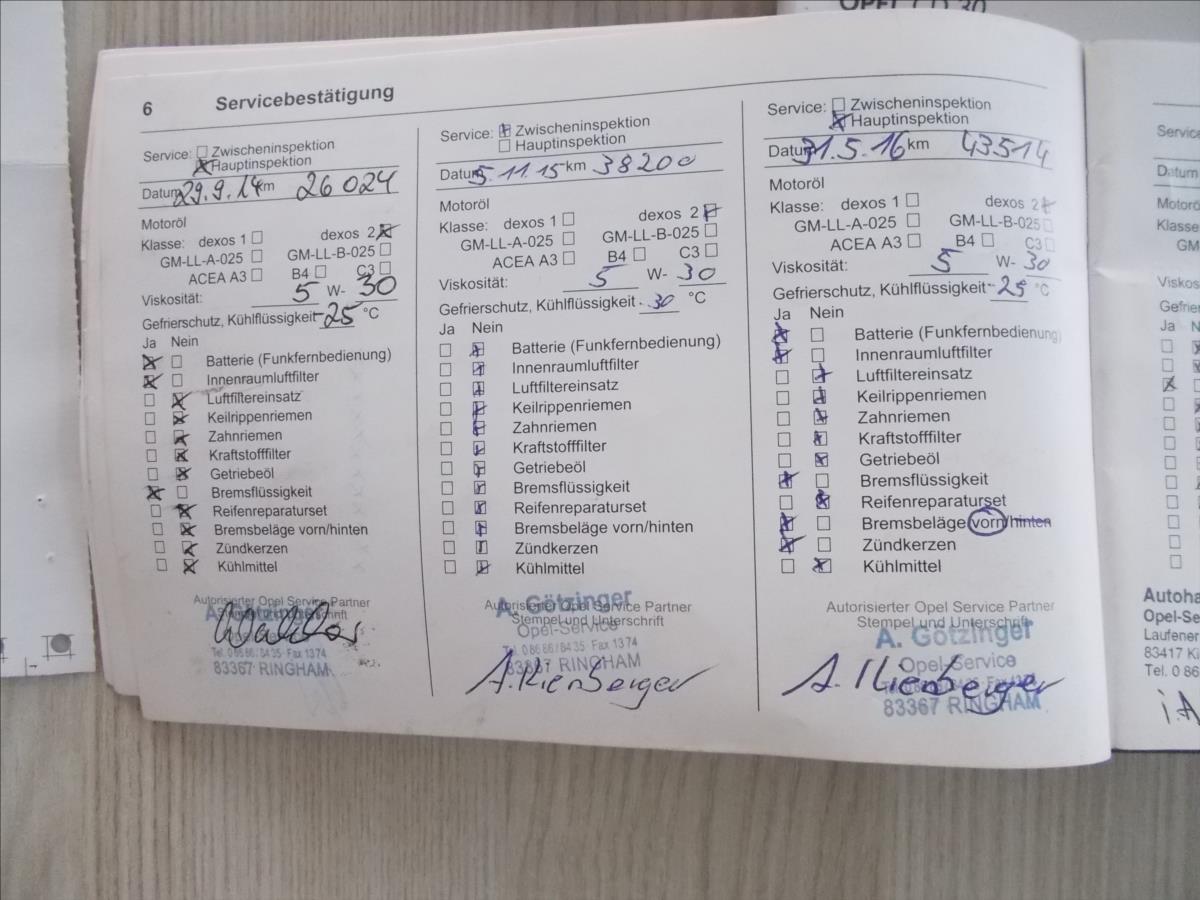 OPEL CD 30
6 Servicebestätigung
Service: Zwischeninspektion
Hauptinspektion
Datum 29.9.14 km 26024
Motoröl
Klasse: dexos 1 dexos 2
GM-LL-A-025 GM-LL-B-025
ACEA A3 B4 C3
Viskosität: 5 W- 30
Gefrierschutz, Kühlflüssigkeit -25 °C
Ja Nein
Batterie (Funkfernbedienung)
Innenraumluftfilter
Luftfiltereinsatz
Keilrippenriemen
Zahnriemen
Kraftstofffilter
Getriebeöl
Bremsflüssigkeit
Reifenreparaturset
Bremsbeläge vorn/hinten
Zündkerzen
Kühlmittel
Autorisierter Opel Service Partner
A. Götzinger
Stempel und Unterschrift
Opel-Service
Tel. 0 86 86 / 84 35 · Fax 13 74
83367 RINGHAM
Service: Zwischeninspektion
Hauptinspektion
Datum 5.11.15 km 38200
Motoröl
Klasse: dexos 1 dexos 2
GM-LL-A-025 GM-LL-B-025
ACEA A3 B4 C3
Viskosität: 5 W- 30
Gefrierschutz, Kühlflüssigkeit -30 °C
Ja Nein
Batterie (Funkfernbedienung)
Innenraumluftfilter
Luftfiltereinsatz
Keilrippenriemen
Zahnriemen
Kraftstofffilter
Getriebeöl
Bremsflüssigkeit
Reifenreparaturset
Bremsbeläge vorn/hinten
Zündkerzen
Kühlmittel
A. Götzinger
Autorisierter Opel Service Partner
Stempel und Unterschrift
Opel-Service
Tel. 0 86 86 / 84 35 Fax 13 74
83367 RINGHAM
Service: Zwischeninspektion
Hauptinspektion
Datum 31.5.16 km 43514
Motoröl
Klasse: dexos 1 dexos 2
GM-LL-A-025 GM-LL-B-025
ACEA A3 B4 C3
Viskosität: 5 W- 30
Gefrierschutz, Kühlflüssigkeit -25 °C
Ja Nein
Batterie (Funkfernbedienung)
Innenraumluftfilter
Luftfiltereinsatz
Keilrippenriemen
Zahnriemen
Kraftstofffilter
Getriebeöl
Bremsflüssigkeit
Reifenreparaturset
Bremsbeläge vorn/hinten
Zündkerzen
Kühlmittel
Autorisierter Opel Service Partner
Stempel und Unterschrift
A. Götzinger
Opel-Service
83367 RINGHAM
Service
Datum
Motorö
Klasse
GM
Viskos
Gefrie
Ja N
Autoha
Opel-Se
Laufener
83417 Ki
Tel. 0 86
i.A